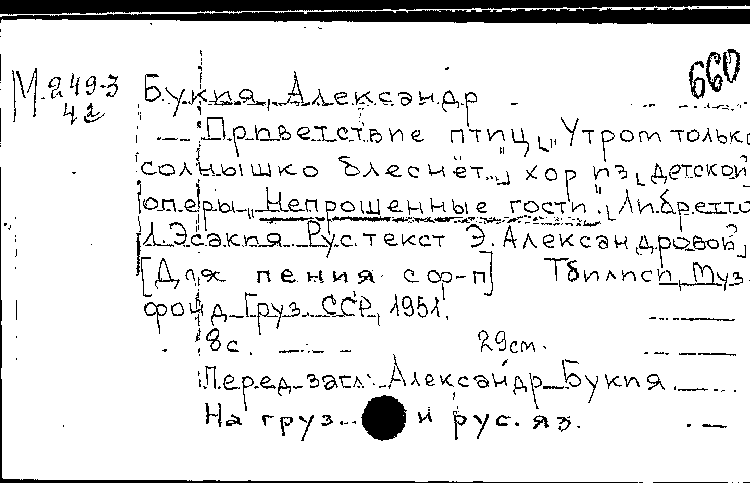 М 249-3
42
660
Букия, Александр
Приветствие птиц, „Утром только
солнышко блеснёт...", хор из детской
оперы „Непрошенные гости". Либретто
Л. Эсакия Рус. текст Э. Александровой
[Для пения с ф-п] Тбилиси, Муз.
фонд Груз. ССР, 1951.
8 с. 29 см.
Перед загл: Александр Букия.
На груз. и рус. яз.